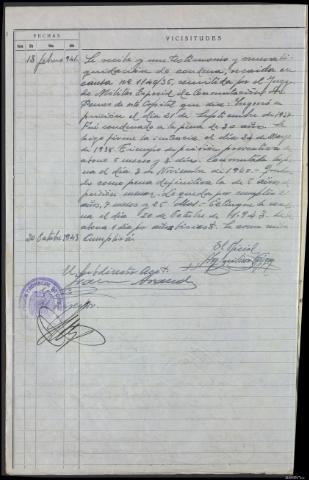 FECHAS
VICISITUDES
Día Mes Año
18 febrero 941.- Se recibe y une testimonio y nueva li-
quidación de condena, recaída en
causa nº 1140/35, remitida por el Juzga-
do Militar Especial de Conmutación de
Penas de esta Capital que dice: Ingresó en
prisión el día 21 de Septiembre de 1937.
Fué condenado a la pena de 30 años.
firme la sentencia el día 24 de Mayo
de 1938. Tiempo de prisión preventiva de
abono 8 meses y 3 días. Conmutada la pe-
na el día 3 de Noviembre de 1940.-
como pena definitiva la de 6 años de
prisión menor. Le queda por cumplir
años, 7 meses y 25 días.- Extingue la con-
dena el día 20 de Octubre de 1.943
1 día por años bisiestos.
20 Octubre 1943 Cumplirá
El Oficial
El Subdirector Acct.